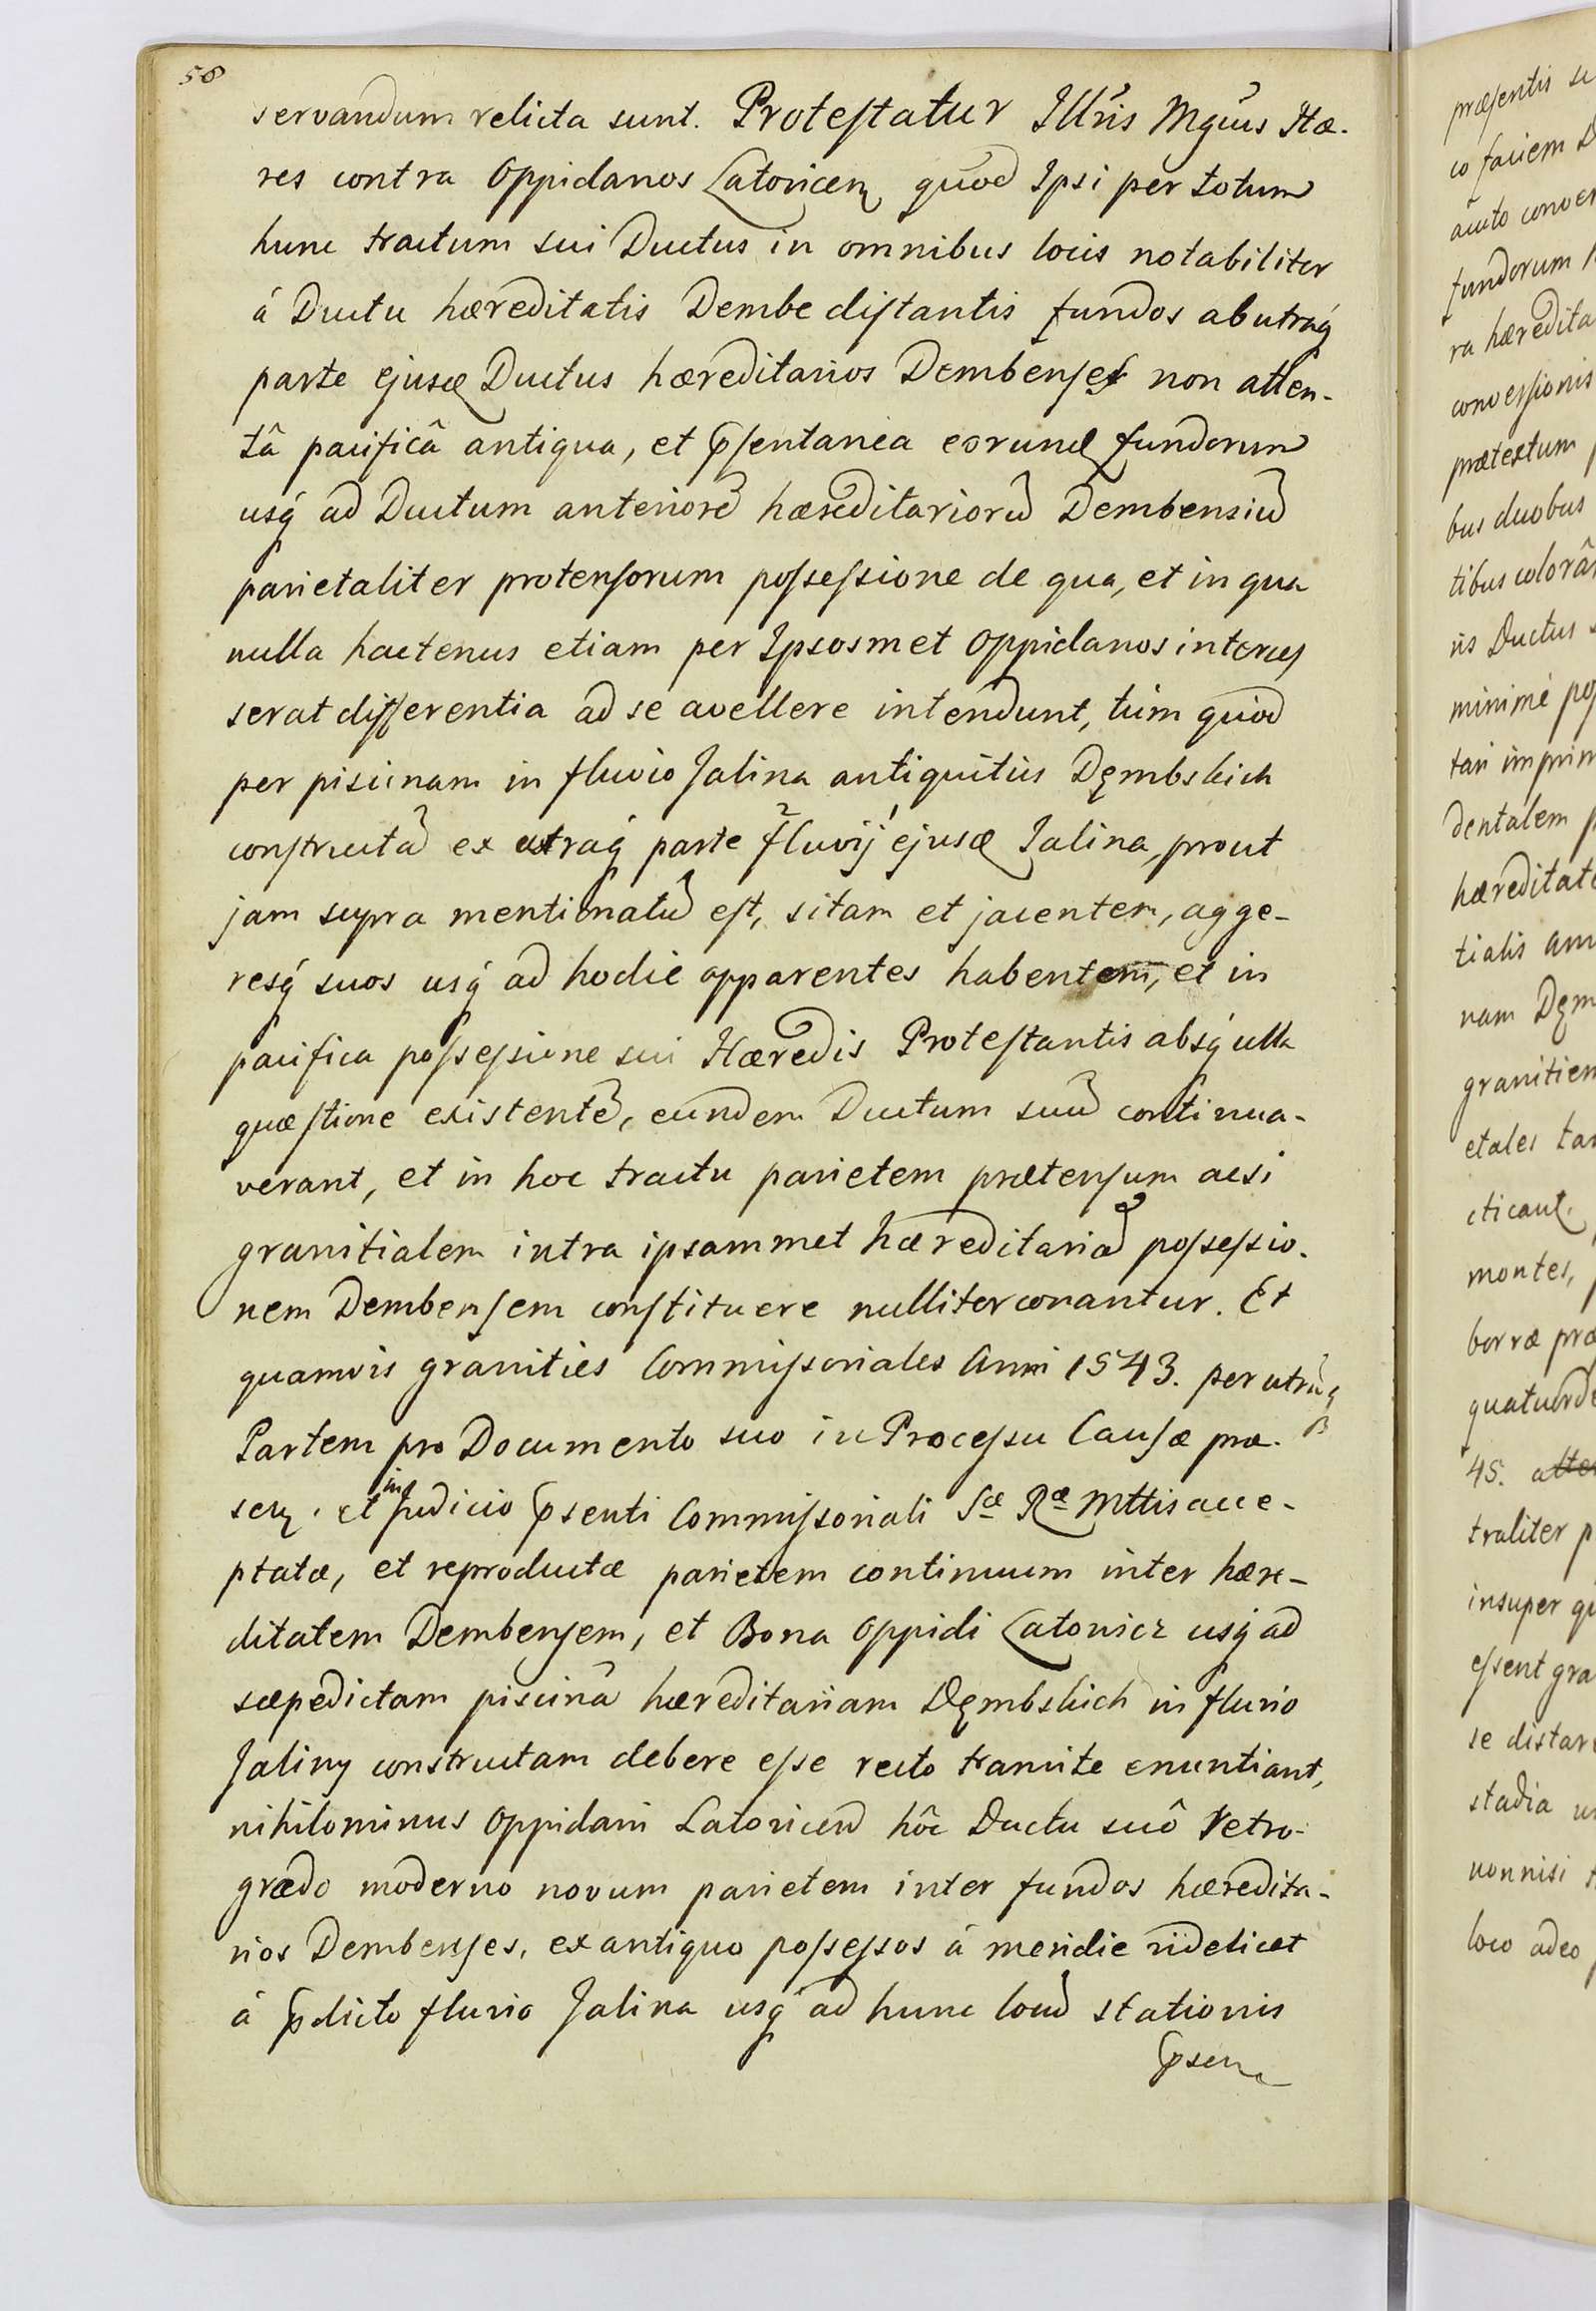 56
servandum relicta sunt. Protestatur Illris Mgcus Hæ-
res contra Oppidanos Latovicen quod Ipsi per totum
hunc tractum sui Ductus in omnibus locis notabiliter
á Ductu hæreditatis Dembe distantis fundos ab utraq́
parte ejusđ Ductus hæreditarios Dembenses non atten-
tâ pacificâ antiqua, et p̄sentanea eorunđ fundorum
usq́ ad Ductum anteriorē hæreditariorū Dembensiū
parietaliter protensorum possessione de qua, et in qua
nulla hactenus etiam per Ipsosmet Oppidanos interces
serat differentia ad se avellere intendunt, tùm quòd
per piscinam in fluvio Jalina antiquitùs Dęmbskich
constructā ex utraq́ parte fluvij ejusđ Jalina, prout
jam supra mentionatū est, sitam et jacentem, agge-
resq́ suos usq́ ad hodie apparentes habentem, et in
pacifica possessione sui Hæredis Protestantis absq́ ulla
quæstione existentē, eundem Ductum suū continua-
verant, et in hoc tractu parietem prætensum acsi
granitialem intra ipsammet hæreditariā possessio-
nem Dembensem constituere nulliter conantur. Et
quamvis granities Commissoriales Anni 1543. per utrāq́
Partem pro Documento suo in Processu Causæ præ-
sen. et in Judicio p̄senti Commissoriali Sæ Ræ Mttis acce-
ptatæ, et reproductæ parietem continuum inter hære-
ditatem Dembensem, et Bona Oppidi Latovicz usq́ ad
sæpedictam piscinā hæreditariam Dęmbskich in fluvio
Jaliny constructam debere esse recto tramite enuntiant,
nihilominus Oppidani Latovicen hôc Ductu suô retro-
grædo moderno novum parietem inter fundos hæredita-
rios Dembenses, ex antiquo possessos á meridie videlicet
á p̄dicto fluvio Jalina usq́ ad hunc locū stationis
p̄sen
præsentis
co faciem
acuto
fundorum
ra hæredita
conversionis
prætextum
bus duobus
tibus colorâ
is Ductus
minimè
tari
dentalem
hæreditate
tialis
nam Dęm
granitiem
etales
cticant
montes,
borræ præ
quatuorde
45.
traliter
insuper
essent gra
se distare
stadia
nonnisi
loco adeo